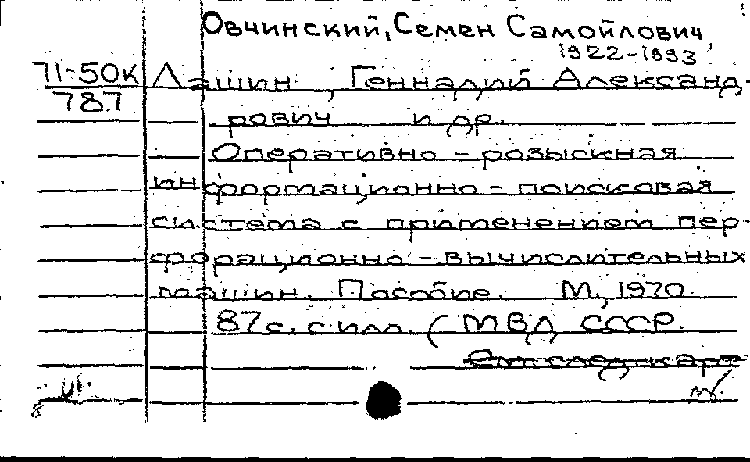 Овчинский, Семен Самойлович
1922-1993
71-50к Лашин, Геннадий Александ-
78.7
рович и др.
Оперативно-розыскная
информационно-поисковая
система с применением пер-
форационно-вычислительных
машин. Пособие. М., 1970.
87 с. с илл. (МВД СССР.
См. след. карт